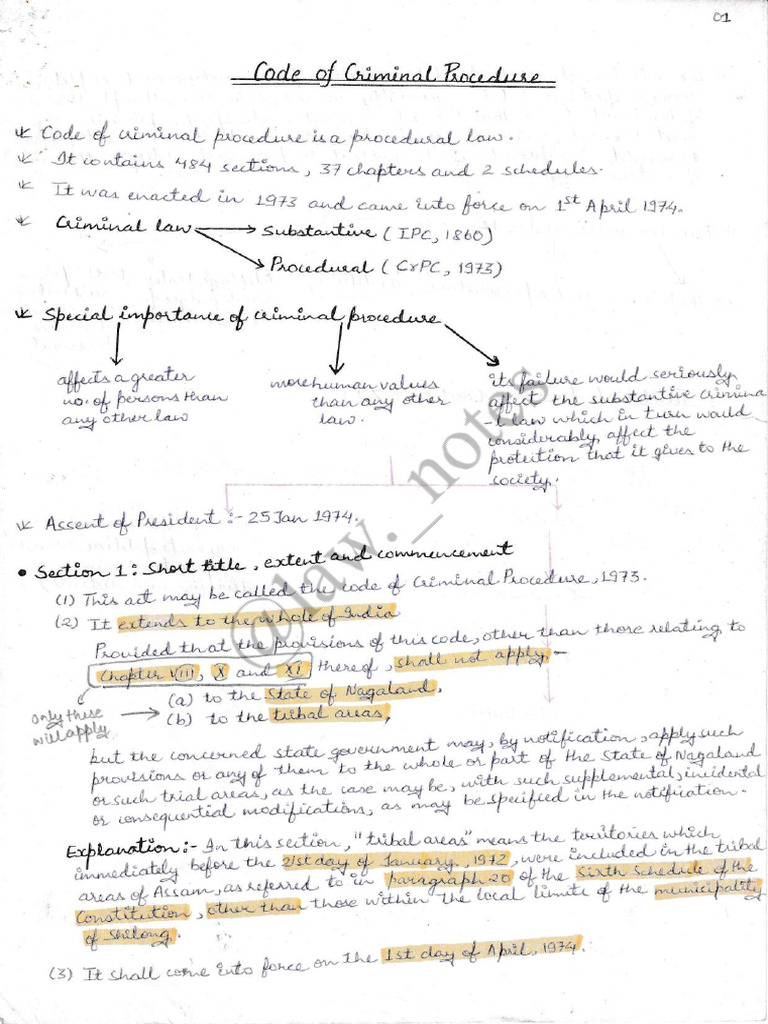 01
Code of Criminal Procedure
Code of criminal procedure is a procedural law.
It contains 484 sections, 37 chapters and 2 schedules.
It was enacted in 1973 and came into force on 1st April 1974.
Criminal law → Substantive (IPC, 1860)
→ Procedural (CrPC, 1973)
Special importance of criminal procedure
affects a greater
no. of persons than
any other law
more human values
than any other
law.
it failure would seriously
affect the substantive crimina
-l law which in turn would
considerably, affect the
protection that it gives to the
society.
Assent of President :- 25 Jan 1974.
• Section 1: Short title, extent and commencement
(1) This act may be called the code of Criminal Procedure, 1973.
(2) It extends to the whole of India
Provided that the provisions of this code, other than those relating to
Chapter VIII, X and XI thereof, shall not apply -
(a) to the State of Nagaland,
only these
will apply
→ (b) to the tribal areas,
but the concerned state government may, by notification, apply such
provisions or any of them to the whole or part of the State of Nagaland
or such trial areas, as the case may be, with such supplemental, incidental
or consequential modifications, as may be specified in the notification.
Explanation:- In this section, "tribal areas" means the territories which
immediately before the 21st day of January, 1972, were included in the tribal
areas of Assam, as referred to in paragraph 20 of the Sixth Schedule of the
Constitution, other than those within the local limits of the municipality
of Shilong.
(3) It shall come into force on the 1st day of April, 1974.
@law._notes